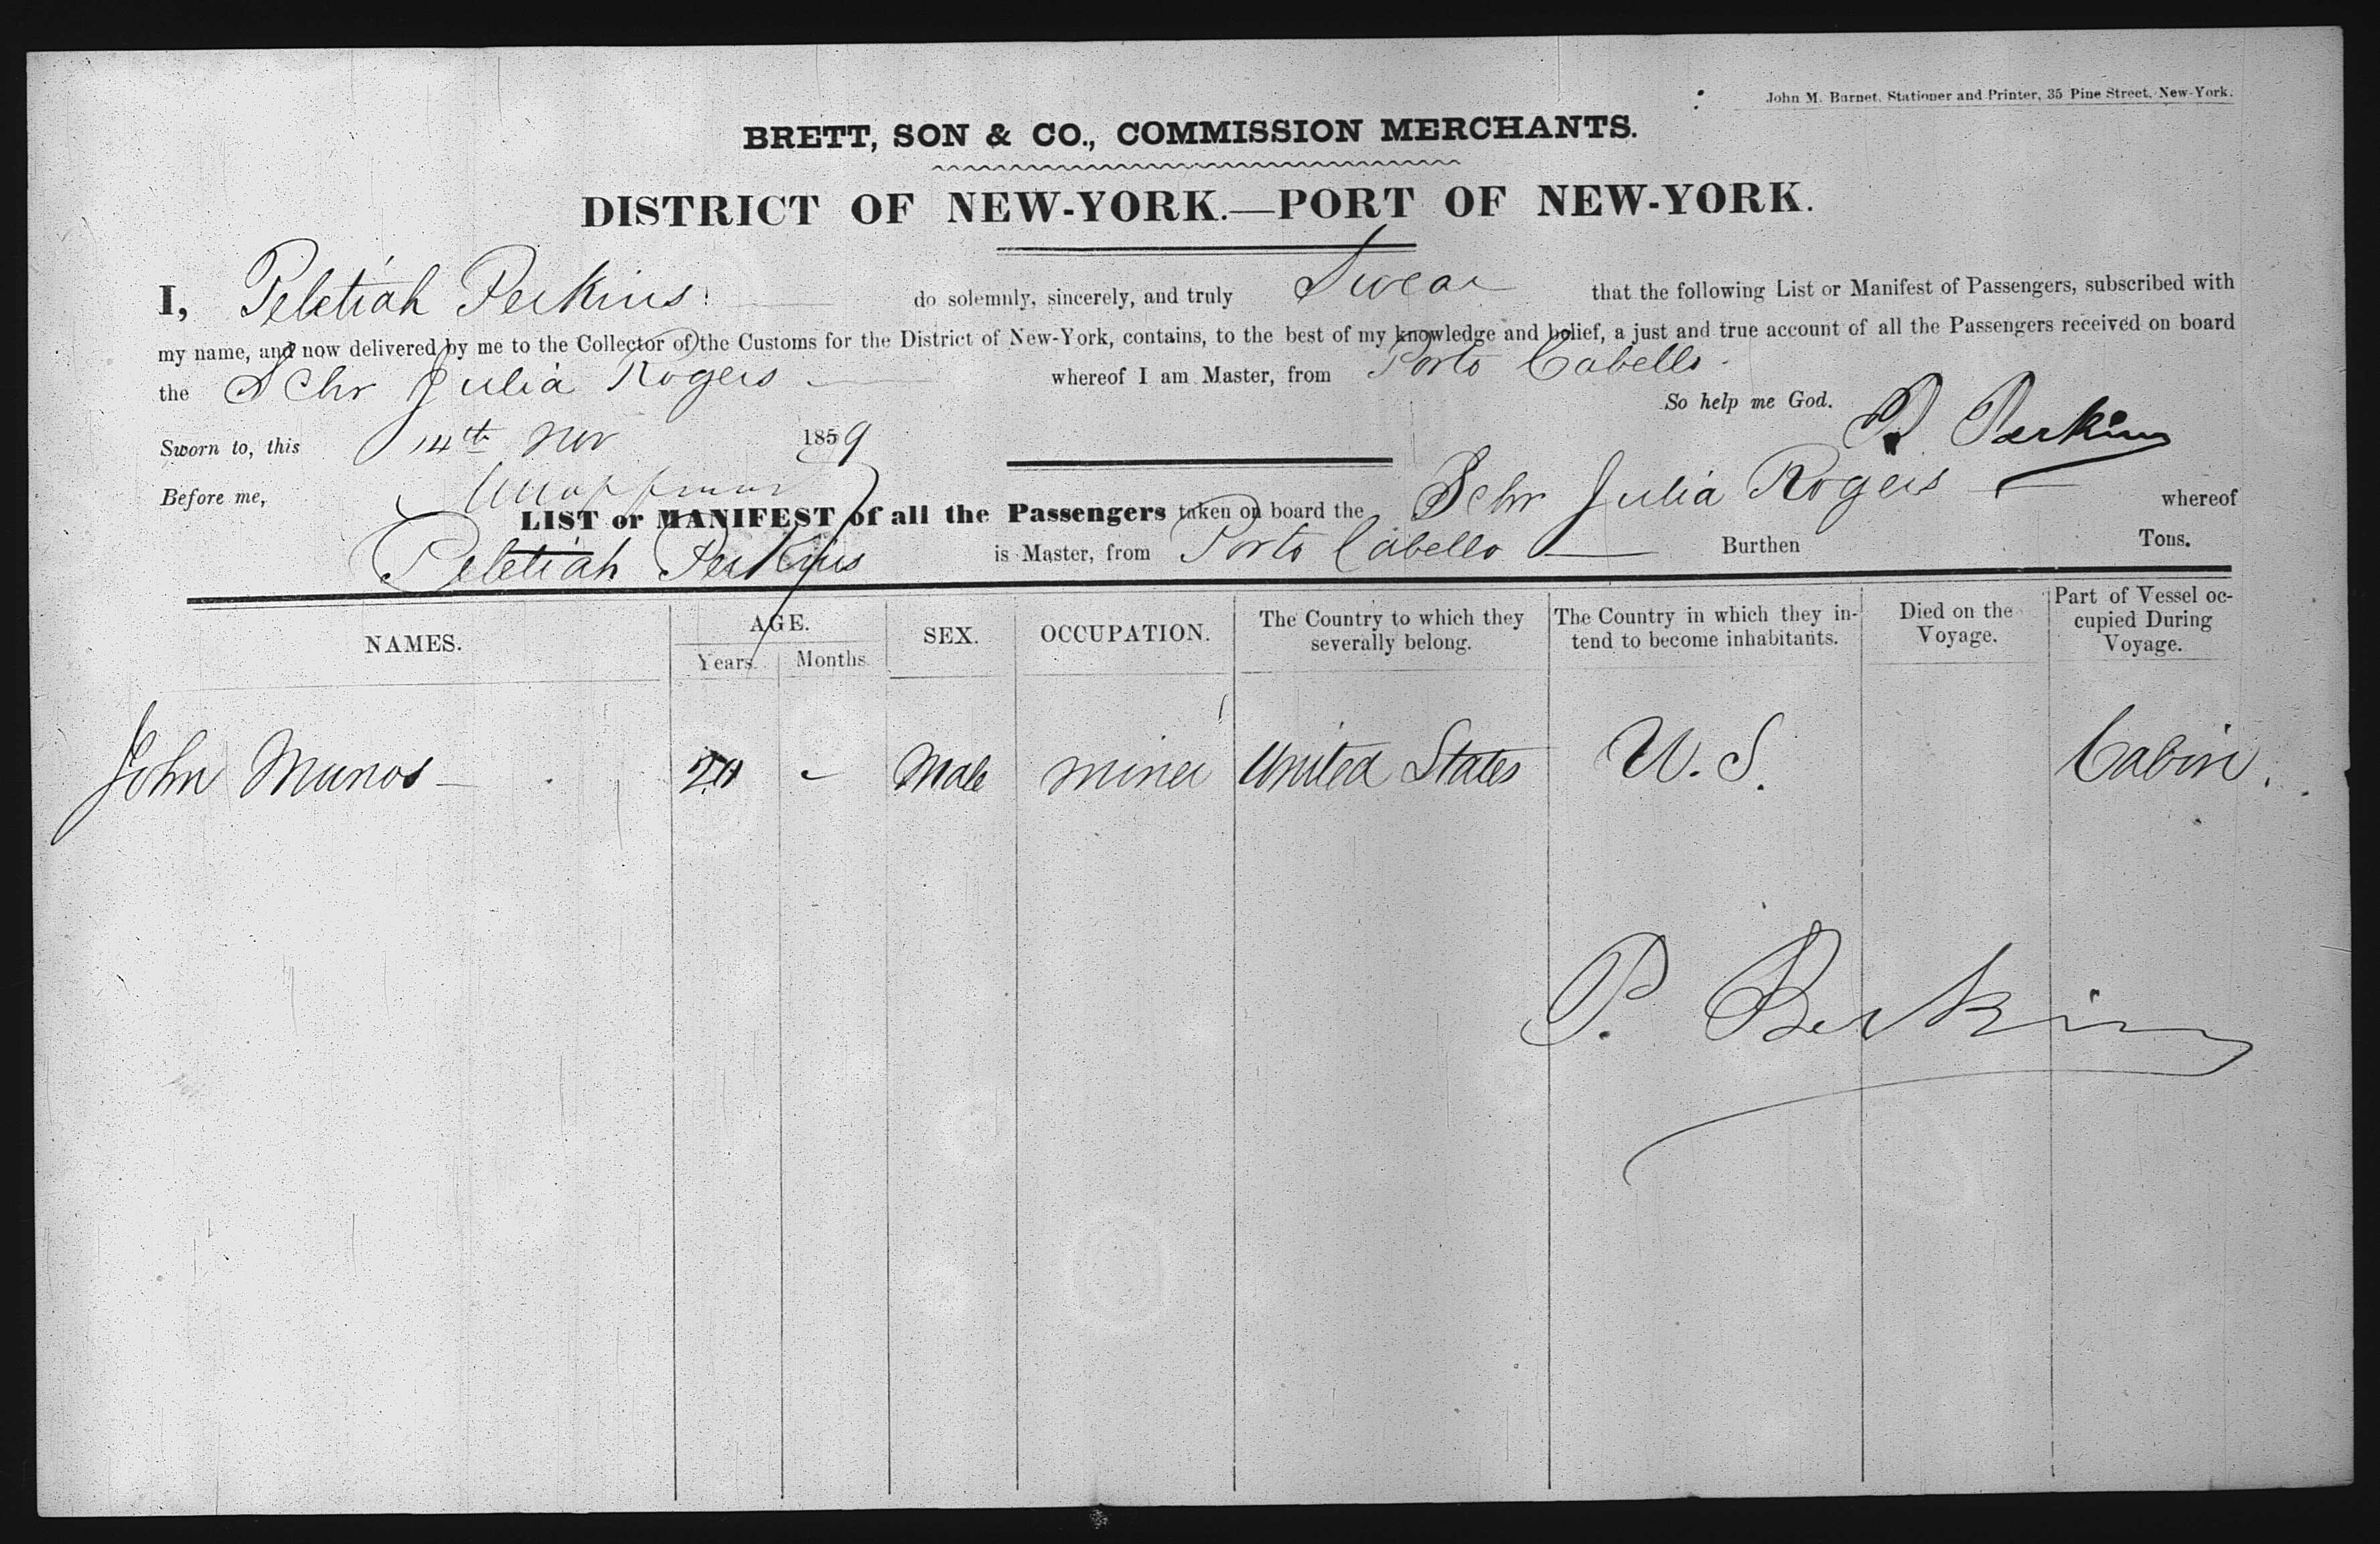 John M. Burnet, Stationer and Printer, 35 Pine Street, New-York.
BRETT, SON & CO., COMMISSION MERCHANTS.
DISTRICT OF NEW-YORK.—PORT OF NEW-YORK.
I, Peletiah Perkins do solemnly, sincerely, and truly Swear that the following List or Manifest of Passengers, subscribed with
my name, and now delivered by me to the Collector of the Customs for the District of New-York, contains, to the best of my knowledge and belief, a just and true account of all the Passengers received on board
the Schr Julia Rogers whereof I am Master, from Porto Cabello
So help me God. P Perkins
Sworn to, this 14th Nov 1859
Before me,
LIST or MANIFEST of all the Passengers taken on board the Schr Julia Rogers whereof
Peletiah Perkins is Master, from Porto Cabello Burthen Tons.
NAMES. AGE. Years. Months. SEX. OCCUPATION. The Country to which they severally belong. The Country in which they intend to become inhabitants. Died on the Voyage. Part of Vessel occupied During Voyage.
John Munos - Male miner United States U.S. Cabin.
P. Perkins